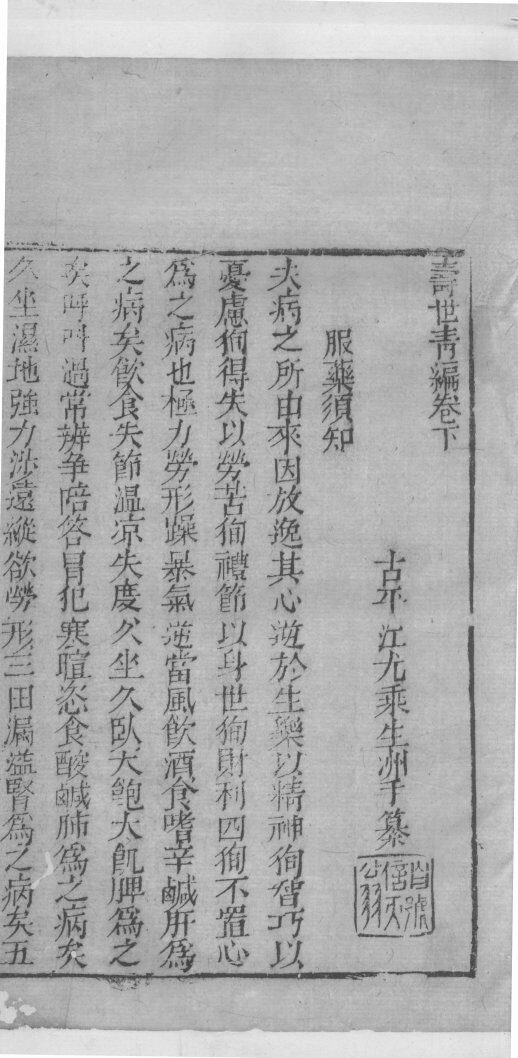 壽世青編卷下
古平江尤乘生洲手纂
服藥須知
夫病之所由來因放逸其心逆於生樂以精神徇智巧以
憂慮徇得失以勞苦徇禮節以身世徇財利四徇不置心
爲之病也極力勞形躁暴氣逆當風飲酒食嗜辛鹹肝爲
之病矣飲食失節溫凉失度久坐久臥大飽大飢脾爲之
病矣呼呌過常辨爭陪答冒犯寒暄恣食酸鹹肺爲之病矣
久坐濕地強力涉遠縱欲勞形三田漏溢腎爲之病矣五